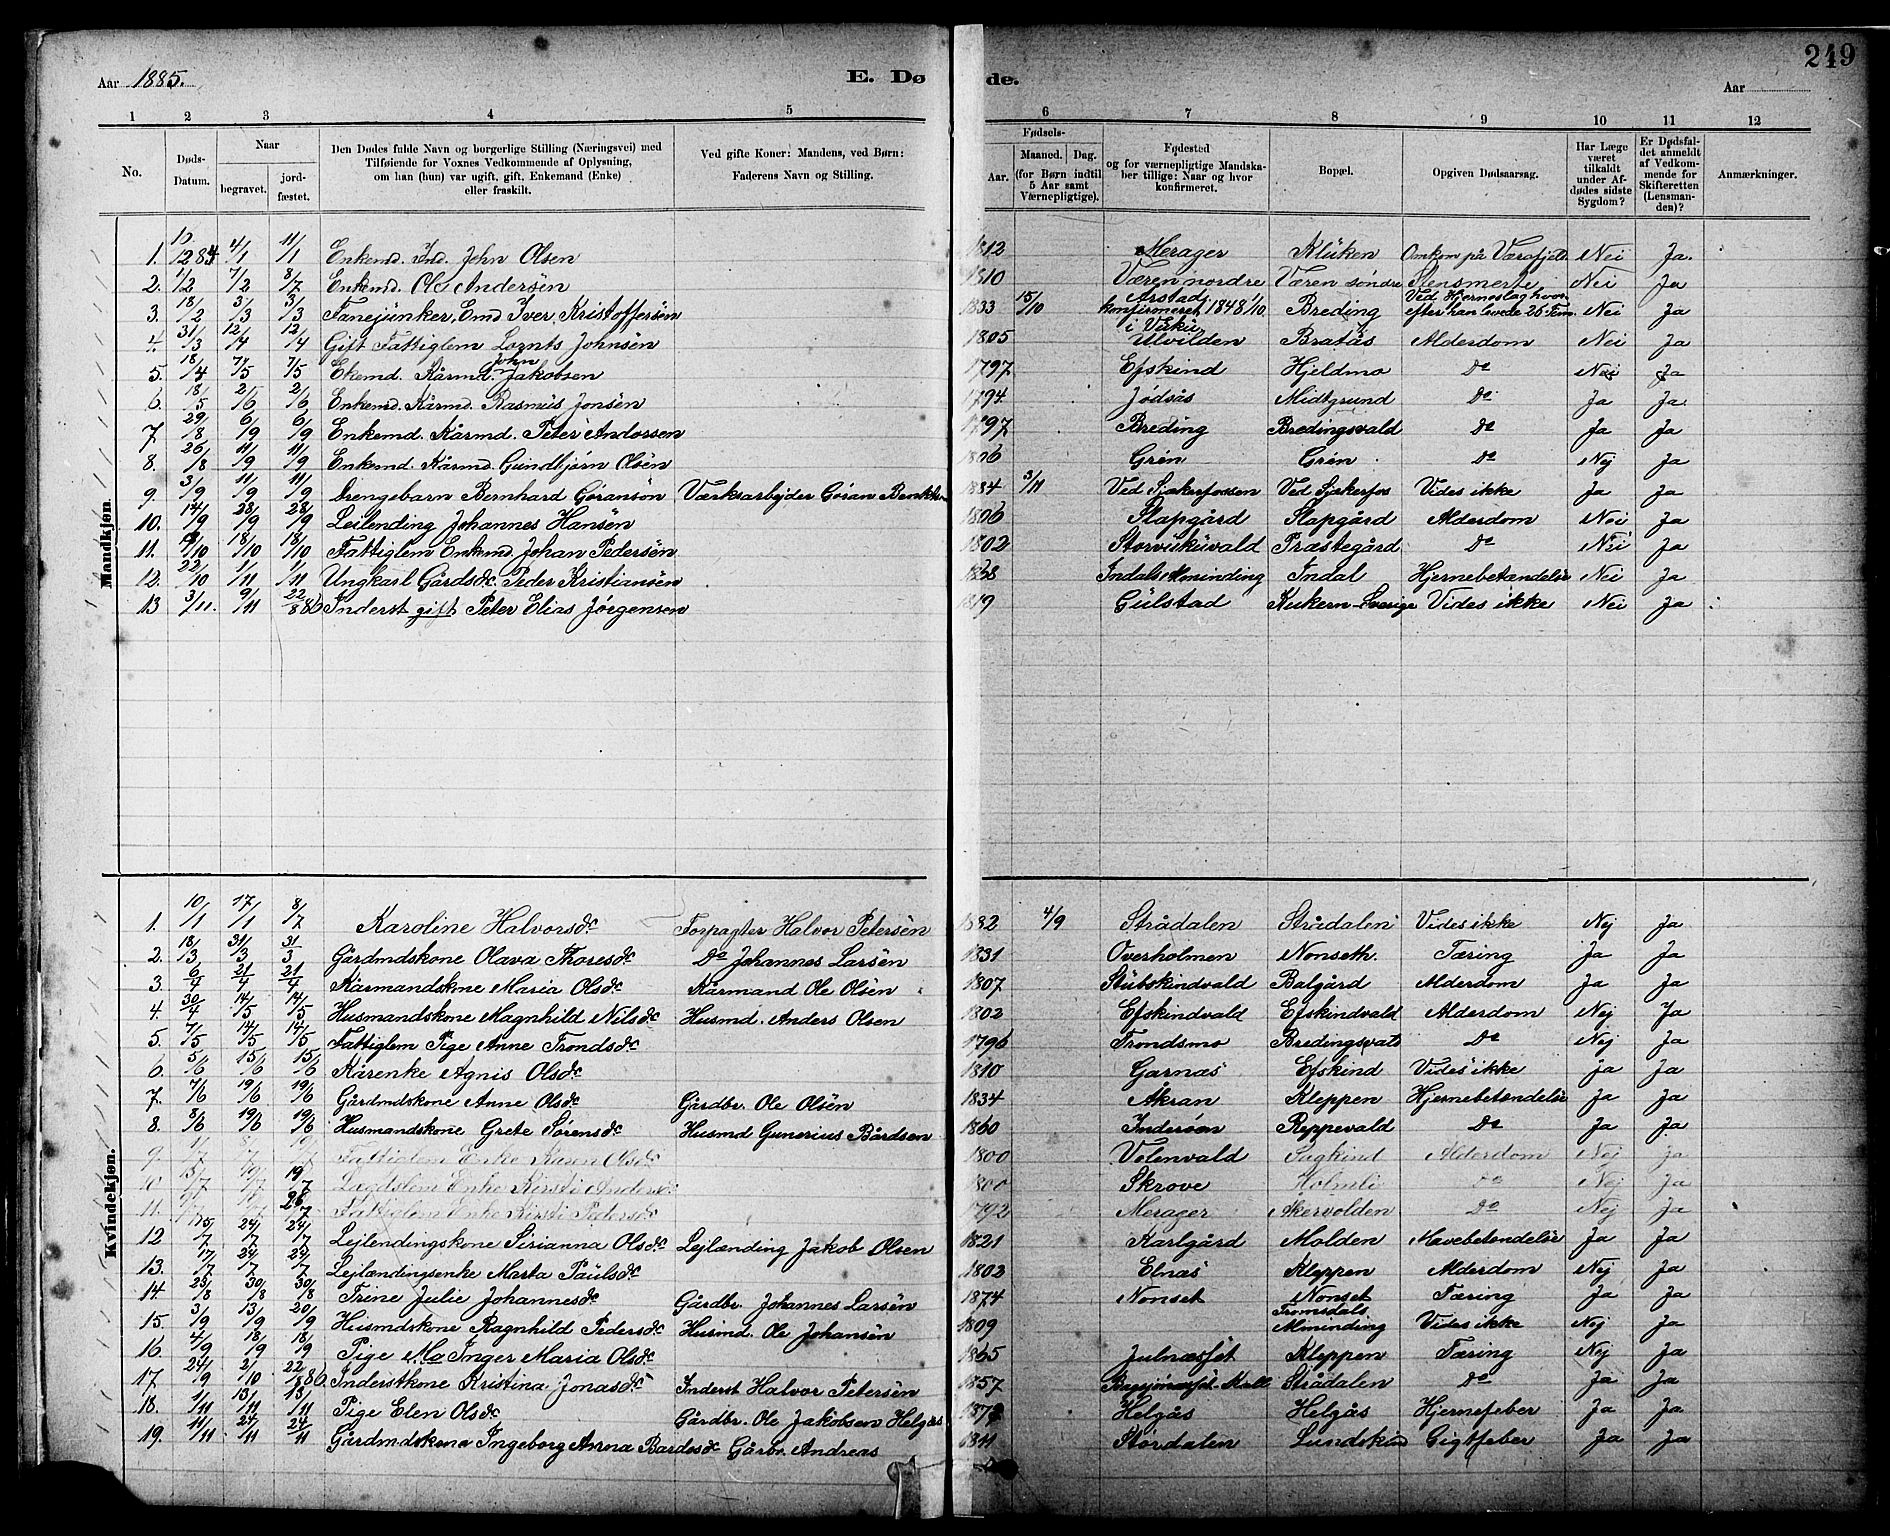 249
Aar 1885. E. Dø de. Aar
1 2 3 4 5 6 7 8 9 10 11 12
No. Døds-Datum. Naar begravet. jordfæstet. Den Dødes fulde Navn og borgerlige Stilling (Næringsvei) med Tilføiende for Voxnes Vedkommende af Oplysning, om han (hun) var ugift, gift, Enkemand (Enke) eller fraskilt. Ved gifte Koner: Mandens, ved Børn: Faderens Navn og Stilling. Fødsels- Aar. Maaned. Dag. (for Børn indtil 5 Aar samt Værnepligtige). Fødested og for værnepligtige Mandskaber tillige: Naar og hvor konfirmeret. Bopæl. Opgiven Dødsaarsag. Har Læge været tilkaldt under Afdødes sidste Sygdom? Er Dødsfaldet anmeldt af Vedkommende for Skifteretten (Lensmanden)? Anmærkninger.
Mandkjøn
1. 4/1 11/1 Enkemd. Ind. John Olsen 1812 Merager Klüken Omkom på Værafjeld Nei Ja.
2. 1/2 7/2 8/7 Enkemd. Ole Andersen 1810 Væren nordre Væren søndre Stensmerte Nei Ja
3. 18/2 3/3 3/3 Fanejunker, Emd Iver Kristoffersön 1833 15/10 Arstad konfirmeret 1848 1/10 i Vüku Breding Ved Hjerneslag hvorefter han levede 25 Tim. Nei Ja
4. 31/3 12/4 12/4 Gift Fattiglem Lornts Johnsen 1805 Ulvilden Bratås Alderdom Nei Ja
5. 18/4 7/5 7/5 Ekemd. Kårmd. John Jakobsen 1797 Efskind Hjeldmo Do Nei Ja
6. 18/5 2/6 2/6 Enkemd. Kårmd. Rasmus Jonsen 1794. Jødsås Midtgrund Do Ja Ja.
7. 29/8 6/9 6/9 Enkemd. Kårmd. Peter Andersen 1797 Breding Bredingsvald Do Ja Ja
8. 26/8 11/9 11/9 Enkemd. Kårmd. Gundbjørn Olsen 1806 Grön Grön Do Nej Ja
9. 3/9 11/9 11/9 Drengebarn Bernhard Göransön Værksarbejder Göran 1884 3/11 Ved Sjækerfossen Ved Sjækerfos Vides ikke Ja Ja
10. 14/9 28/9 28/9 Leilending Johannes Hansen 1806 Slapgård Slapgård Alderdom Nei Ja
11. 18/10 18/10 Fattiglem Enkemd. Johan Pedersen 1802 Storvukuvald Præstegård Do Nei Ja
12. 22/10 1/11 1/11 Ungkarl Gårdsdr. Peder Kristiansen Indals Alminding Indal Hjernebetændelse Nei Ja
13 3/11. 9/11 22/8 86 Inderst gift Peter Elias Jørgensen 1819 Gülstad Kukern-Sverige Vides ikke Nei Ja
Kvindekjøn.
1. 10/1 17/1 8/7 Karoline Halvorsdr Forpagter Halvor Petersen 1882 4/9 Strådalen Strådalen Vides ikke Nej Ja
2. 18/3 31/3 31/3 Gårdmdskone Olava Thoresdr Do Johannes Larsen 1831 Overholmen Nonseth. Tæring Ja Ja
3. 6/4 21/4 21/4 Kårmandskone Maria Olsdr Kårmand Ole Olsen 1807 Stübskindvald Balgård Alderdom Ja Ja
4. 30/4 14/5 14/5 Husmandskone Magnhild Nilsdr Husmd. Anders Olsen 1802 Efskindvald Efskindvald Alderdom Nej Ja
5. 7/5 14/5 14/5 Fattiglem Pige Anne Trondsdr 1796 Trondsmo Bredingsvald Do Nej Ja
6. 5/6 15/6 15/6 Kårenke Agnis Olsdr 1810 Garnæs Efskind Vides ikke Ja Ja
7. 7/6 19/6 19/6 Gårdmdskone Anne Olsdr Gårdbr. Ole Olsen 1834 Åkran Kleppen Hjernebetændelse Ja Ja
8. 8/6 19/6 19/6 Husmandskone Grete Sørensdr Husmd Gunerius Bårdsen 1860 Inderøen Reppevald Do Ja Ja
9. Fattiglem Enke Karen Olsdr 1800 Volenvald Sagkind Alderdom Nej Ja
10. Lægdslem Enke Kirsti Andersdr 1800 Skrove Holmli Do Nej Ja
11. Fattiglem Enke Kirsti Pedersdr 1792 Merager Åkervolden Do Nej Ja
12 15/7 24/7 24/7 Lejlendingskone Sirianna Olsdr Lejlænding Jakob Olsen 1821 Karlgård Molden Mavebetendelse Ja Ja
13. 17/7 24/7 24/7 Lejlændingsenke Marta Paulsdr 1802 Elnæs Kleppen Alderdom Nej Ja
14 25/8 30/8 30/8 Trine Julie Johannesdr Gårdbr. Johannes Larsen 1874 Nonset Nonset Tæring Ja Ja
15. 3/9 13/9 20/9 Husmdskone Ragnhild Pedersdr Husmd. Ole Johansen 1809 Tromsdals Alminding Vides ikke Nej Ja
16 4/9 18/9 18/9 Pige Inger Maria Olsdr 1865 Julnæsset Kleppen Tæring Nej Ja
17. 24/9 2/10 22/8 86 Inderstkone Kristina Jonasdr Inderst Halvor Petersen 1857 Strådalen Do Ja Ja
18. 1/11 13/11 13/11 Pige Elen Olsdr Gårdbr. Ole Jakobsen Helgås Helgås Helgås Hjernefeber Ja Ja
19. 11/11 24/11 24/11 Gårdmdskone Ingeborg Anna Bardosdr Gårbr. Andreas Størdalen Sundskind Gigtfeber Ja Ja